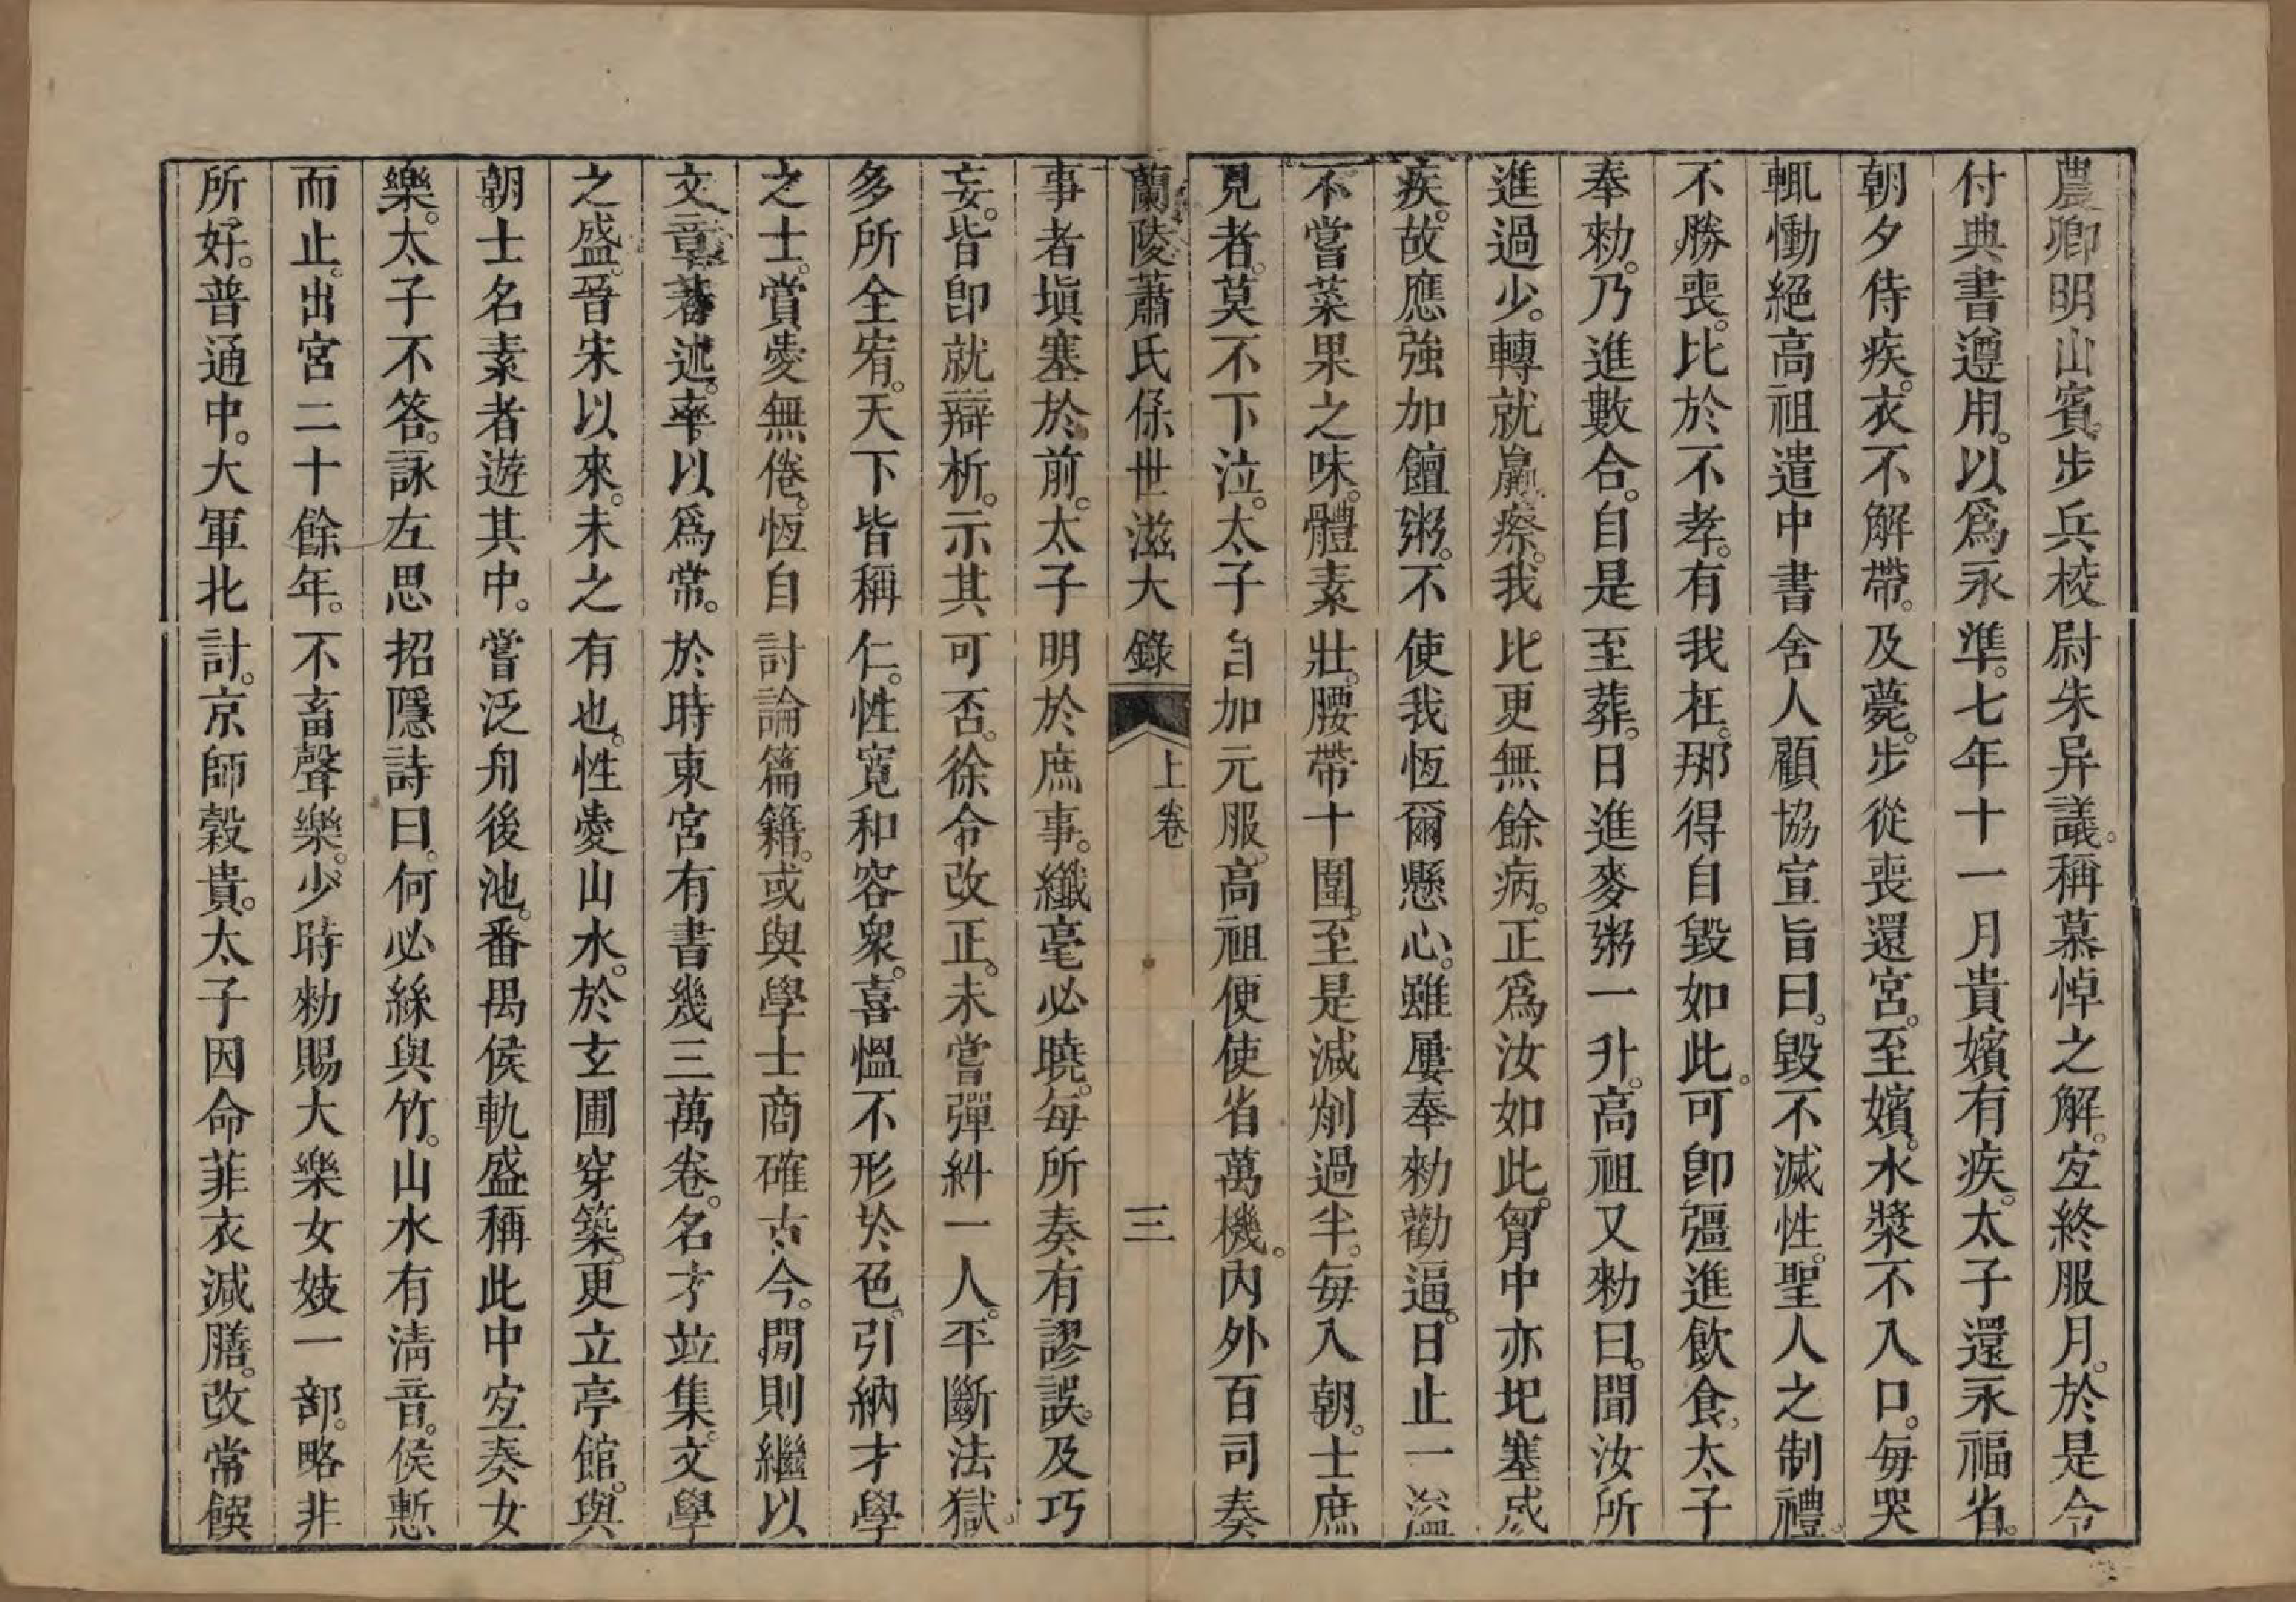 農卿明山賓。步兵校尉朱异議。稱慕悼之解。宐終服月。於是令
付典書遵用。以爲永準。七年十一月貴嬪有疾。太子還永福省。
朝夕侍疾。衣不解帶。及薨。步從喪還宮。至嬪。水漿不入口。每哭
輒慟絕高祖遣中書舍人顧協宣旨曰。毀不滅性。聖人之制禮。
不勝喪。比於不孝。有我在。那得自毀如此。可卽彊進飲食。太子
奉勑。乃進數合。自是至葬。日進麥粥一升。高祖又勑曰。聞汝所
進過少。轉就羸瘵。我比更無餘病。正爲汝如此。胷中亦圯塞成
疾。故應強加饘粥。不使我恆爾懸心。雖屢奉勑勸逼。日止一溢
不嘗菜果之味。體素壯。腰帶十圍。至是減削過半。每入朝。士庶
見者。莫不下泣。太子自加元服。高祖便使省萬機。內外百司奏
蘭陵蕭氏係世滋大錄 上卷 三
事者塡塞於前。太子明於庶事。纖毫必曉。每所奏有謬誤。及巧
妄。皆卽就辯析。示其可否。徐令改正。未嘗彈糾一人。平斷法獄。
多所全宥。天下皆稱仁。性寬和容衆。喜慍不形於色。引納才學
之士。賞愛無倦。恆自討論篇籍。或與學士商確古今。閒則繼以
文章著述。率以爲常。於時東宮有書幾三萬卷。名才竝集。文學
之盛。晉宋以來。未之有也。性愛山水。於玄圃穿築。更立亭館。與
朝士名素者遊其中。嘗泛舟後池。番禺侯軌盛稱此中宐奏女
樂。太子不答。詠左思招隱詩曰。何必絲與竹。山水有清音。侯慙
而止。出宮二十餘年。不畜聲樂。少時勑賜大樂女妓一部。略非
所好。普通中。大軍北討。京師穀貴。太子因命菲衣減膳。改常饌